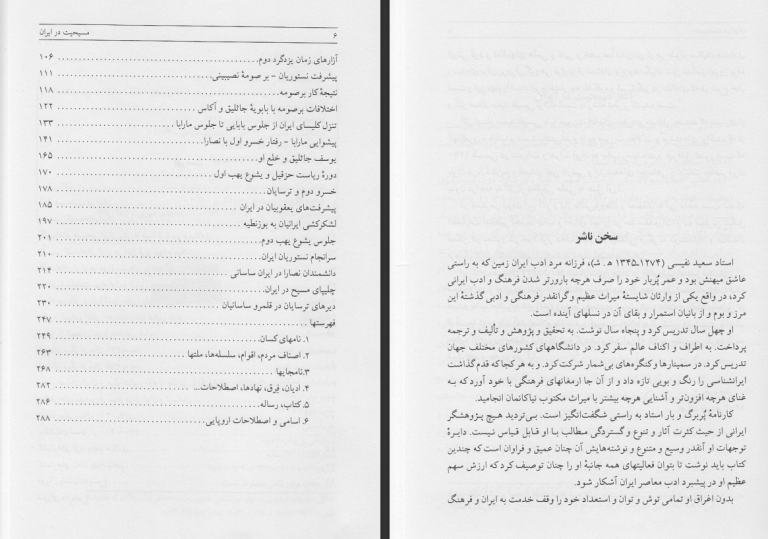 ۶ مسیحیت در ایران
آزارهای زمان یزدگرد دوم ۱۰۶
پیشرفت نستوریان - برصومهٔ نصیبینی ۱۱۱
نتیجهٔ کار برصومه ۱۱۸
اختلافات برصومه با بابویهٔ جاثلیق و آکاس ۱۲۲
تنزل کلیسای ایران از جلوس بابایی تا جلوس مارابا ۱۳۳
پیشوایی مارابا - رفتار خسرو اول با نصارا ۱۴۱
یوسف جاثلیق و خلع او ۱۶۵
دورهٔ ریاست حزقیل و یشوع یهب اول ۱۷۰
خسرو دوم و ترسایان ۱۷۸
پیشرفت‌های یعقوبیان در ایران ۱۸۵
لشکرکشی ایرانیان به بوزنطیه ۱۹۷
جلوس یشوع یهب دوم ۲۰۱
سرانجام نستوریان ایران ۲۱۰
دانشمندان نصارا در ایران ساسانی ۲۱۴
چلیپای مسیح در ایران ۲۲۰
دیرهای ترسایان در قلمرو ساسانیان ۲۳۰
فهرستها ۲۴۷
۱. نامهای کسان ۲۴۹
۲. اصناف مردم، اقوام، سلسله‌ها، ملتها ۲۶۳
۳. نامجایها ۲۶۸
۴. ادیان، فِرَق، نهادها، اصطلاحات... ۲۸۲
۵. کتاب، رساله ۲۸۶
۶. اسامی و اصطلاحات اروپایی ۲۸۸
سخن ناشر
استاد سعید نفیسی (۱۲۷۴-۱۳۴۵ ه‍. ش)، فرزانه مرد ادب ایران زمین که به راستی
عاشق میهنش بود و عمر پُربار خود را صرف هرچه بارورتر شدن فرهنگ و ادب ایرانی
کرد، در واقع یکی از وارثان شایستهٔ میراث عظیم و گرانقدر فرهنگی و ادبی گذشتهٔ این
مرز و بوم و از بانیان استمرار و بقای آن در نسلهای آینده است.
او چهل سال تدریس کرد و پنجاه سال نوشت. به تحقیق و پژوهش و تألیف و ترجمه
پرداخت. به اطراف و اکناف عالم سفر کرد. در دانشگاههای کشورهای مختلف جهان
تدریس کرد. در سمینارها و کنگره‌های بی‌شمار شرکت کرد. و به هرکجا که قدم گذاشت
ایرانشناسی را رنگ و بویی تازه داد و از آن جا ارمغانهای فرهنگی با خود آورد که به
غنای هرچه افزون‌تر و آشنایی هرچه بیشتر با میراث مکتوب نیاکانمان انجامید.
کارنامهٔ پُربرگ و بار استاد به راستی شگفت‌انگیز است. بی‌تردید هیچ پژوهشگر
ایرانی از حیث کثرت آثار و تنوع و گستردگی مطالب با او قابل قیاس نیست. دایرهٔ
توجهات او آنقدر وسیع و متنوع و نوشته‌هایش آن چنان عمیق و فراوان است که چندین
کتاب باید نوشت تا بتوان فعالیتهای همه جانبهٔ او را چنان توصیف کرد که ارزش سهم
عظیم او در پیشبرد ادب معاصر ایران آشکار شود.
بدون اغراق او تمامی توش و توان و استعداد خود را وقف خدمت به ایران و فرهنگ